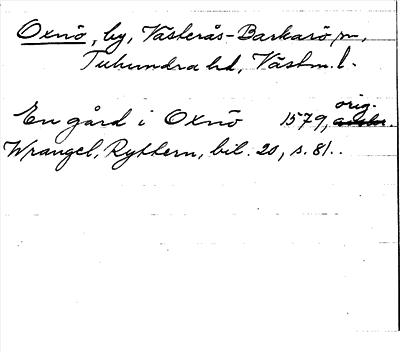 Oxnö, by, Västerås-Barkarö sn,
Tuhundra hd, Västm. l.
En gård i Oxnö 1579, orig.
Wrangel, Ryttern, bil. 20, s. 81.